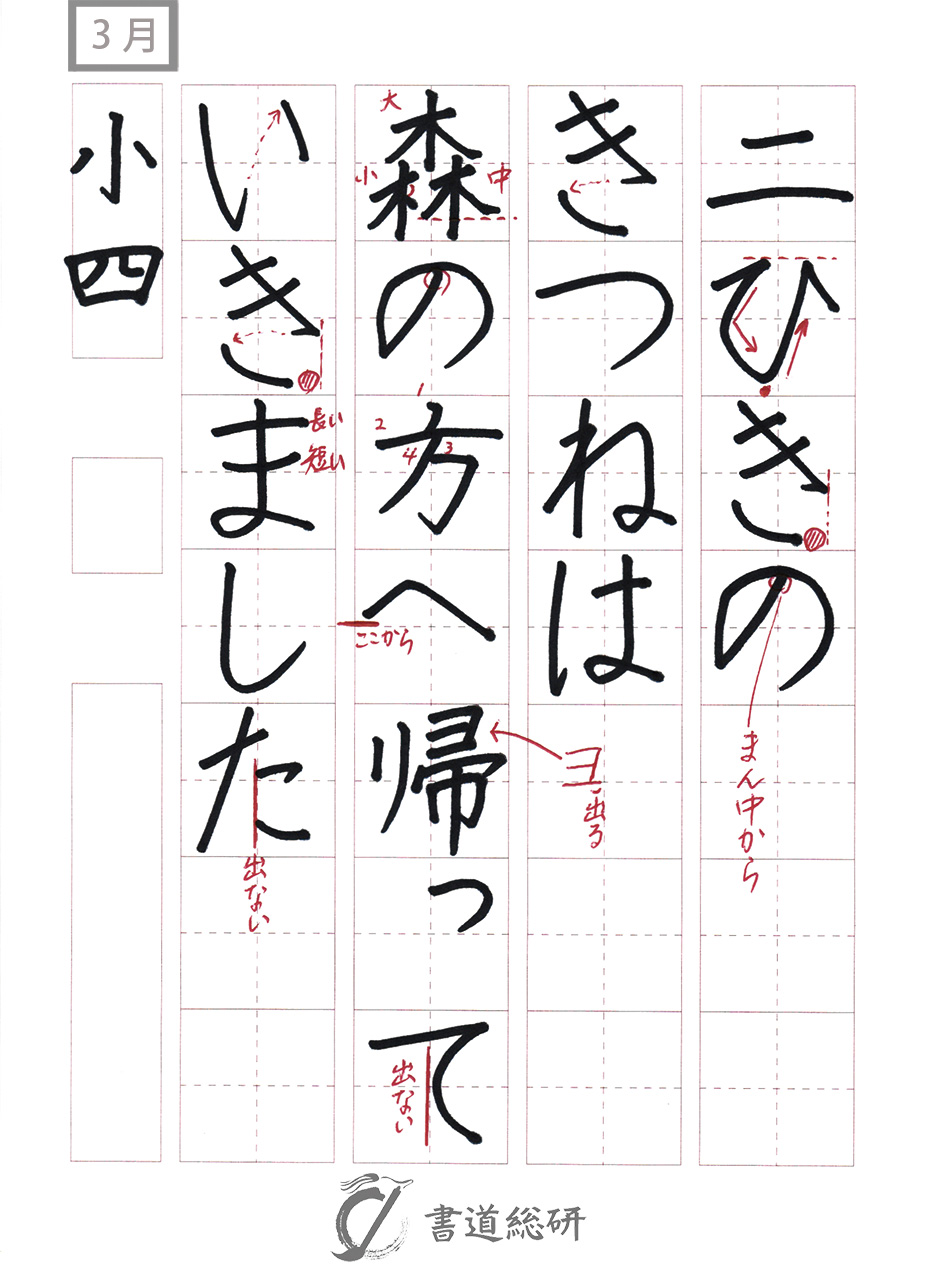 3月
二ひきの
まん中から
きつねは
ヨ出る
大
小
中
森の方へ帰って
1
2
3
4
ここから
出ない
いきました
長い
短い
出ない
小四
書道総研